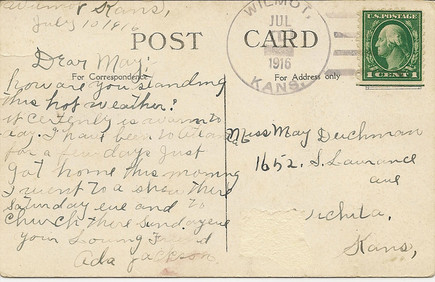 Wilmot Kans,
July 10 1916
POST CARD
For Correspondence
For Address only
WILMOT,
JUL
1916
KANS.
U.S. POSTAGE
1 CENT 1
Dear May;
How are you standing
this hot weather?
it certenly is awarm to
day. I have been to
for a few days Just
got home this morning
I went to a show there
Saturday eve and to
Church there Sunday eve
your Loving Friend
Ada Jackson.
Miss May Deichman
1652. S. Laurance
ave
Wichita,
Kans,